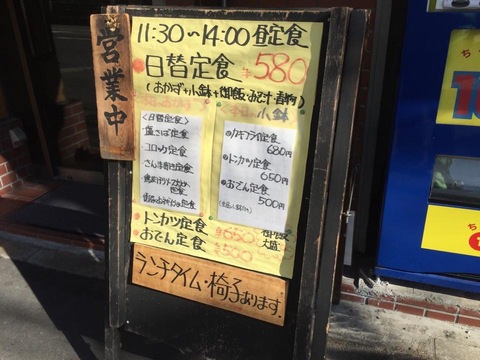 営業中
11:30〜14:00 昼定食
日替定食 ¥580
(おかず+小鉢+御飯・みそ汁・香物)
本日のおかず
<日替定食>
塩さば定食
コロッケ定食
さんま開き定食
本日の小鉢
カキフライ定食
680円
トンカツ定食
650円
おでん定食
500円
トンカツ定食 ¥650
おでん定食 ¥500
大盛
ランチタイム・椅子あります。